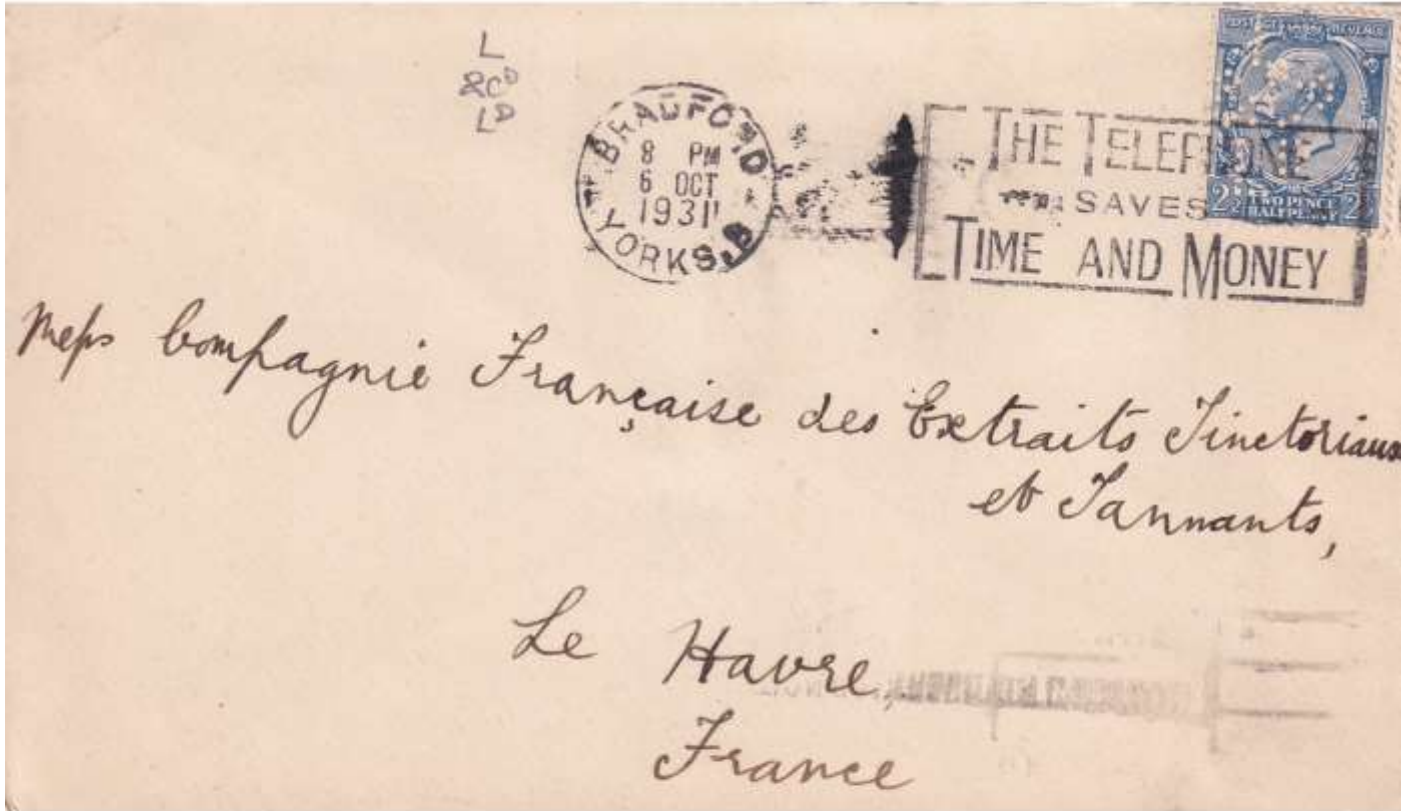 L
&Co
LD
BRADFORD
8 PM
6 OCT
1931
YORKS. B
POSTAGE REVENUE
THE TELEPHONE
SAVES
TIME AND MONEY
2½ TWO PENCE HALFPENNY 2
Mess Compagnie Française des Extraits Tinctoriaux
et Tannants,
Le Havre,
France